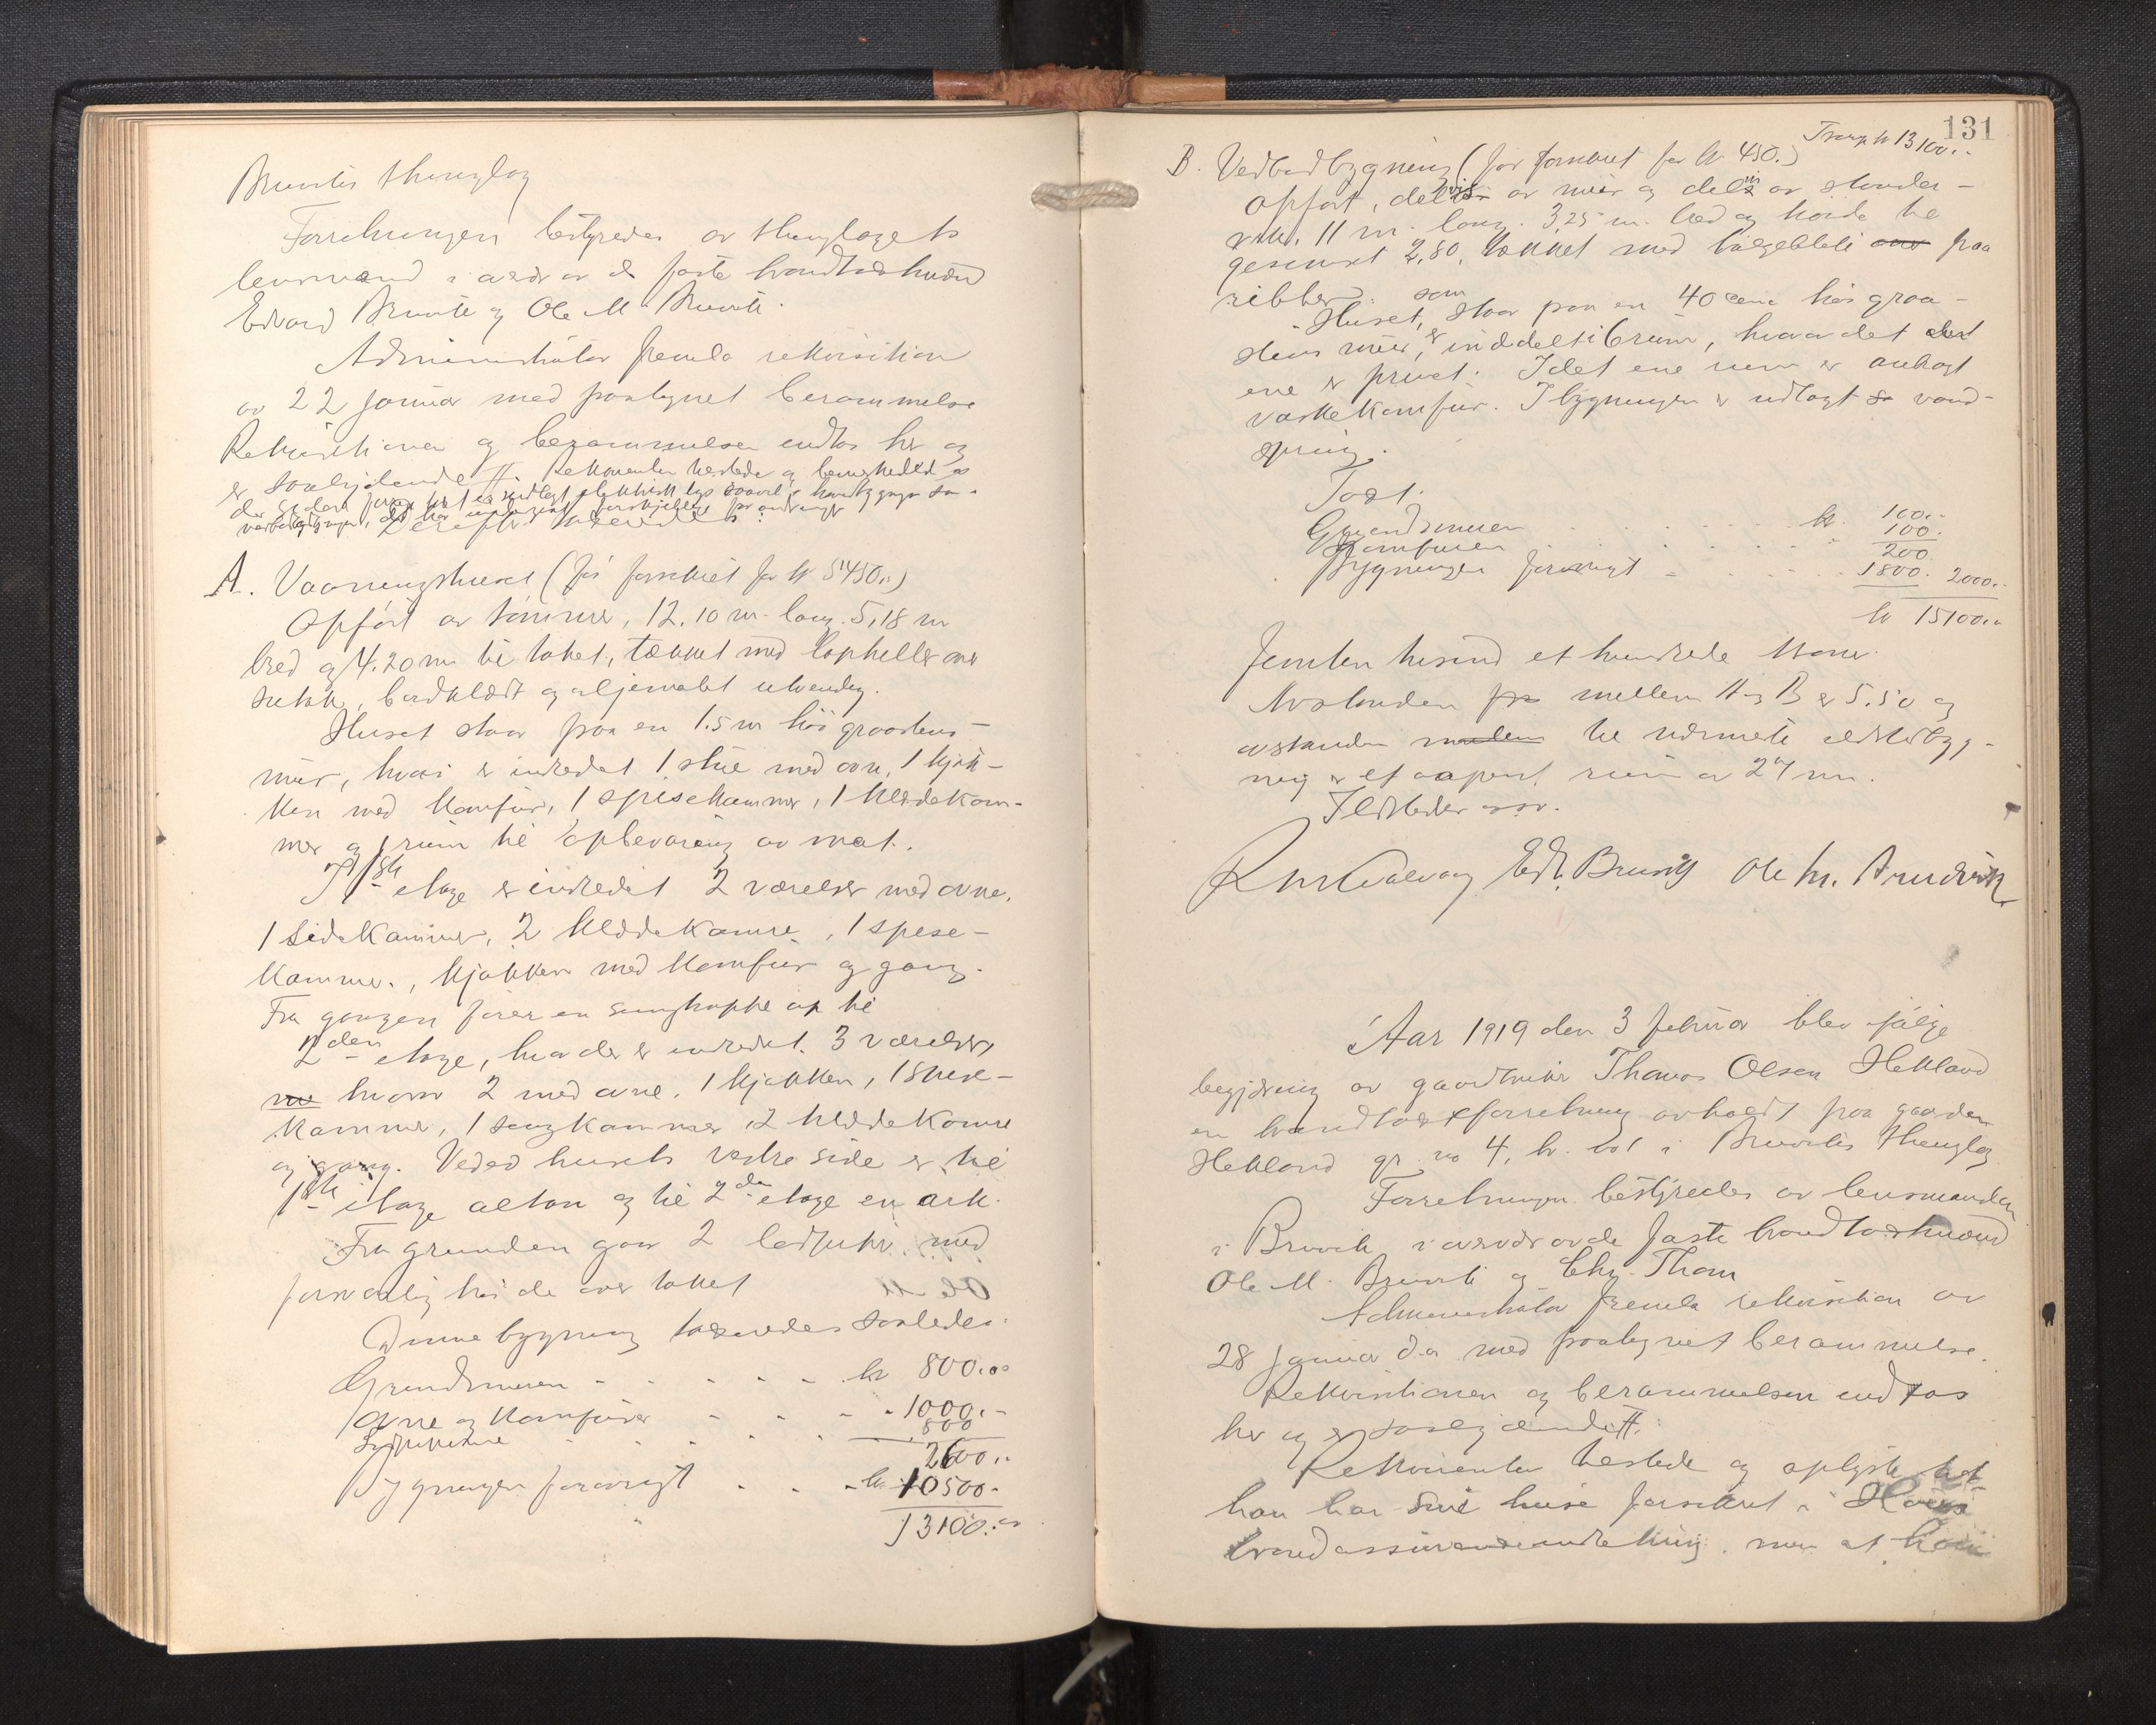 Bruvik thinglag
Forretningen bestyredes av thinglagets
lensmand i overvær av de faste brandtakstmænd
Edvard Bruvik og Ole M. Bruvik.
Administrator fremla rekvisition
av 22 januar med paategnet berammelse
Rekvisitionen og berammelsen indtas her og
er saalydende #. Rekvirenten tilstede og bemerkede at
der siden forrige takst er indlagt elektrisk lys saavel i hovedbygningen som
Derefter takseredes:
A. Vaaningshuset (før forsikret for kr 5450.-)
Opført av tømmer, 12.10 m. lang. 5,18 m
bred og 4.20 m til taket, tækket med lapheller over
suttak, bordklædt og oljemalet utvendig.
Huset staar paa en 1.5 m høi graastens-
mur, hvori er indredet 1 stue med ovn, 1 kjøk-
ken med komfur, 1 spisekammer, 1 klædekam-
mer og 1 rum til opbevaring av mat.
I 1ste etage er indredet 2 værelser med ovne,
1 sidekammer, 2 klædekamre, 1 spise-
kammer, kjøkken med komfur og gang.
Fra gangen fører en svingtrappe op til
2den etage, hvor der er indredet 3 værelser,
hvorav 2 med ovne, 1 kjøkken, 1 spise-
kammer, 1 sengkammer, 2 klædekamre
og gang. Ved husets vestre side er til
1ste etage altan og til 2den etage en ark.
Fra grunden gaar 2 lodpiper med
forsvarlig høide over taket
Denne bygning takseredes saaledes:
Grundmuren - - - - - kr 800.00
Ovne og komfurer - - - - 1000.-
Lodpiperne - - - - 800
2600.-
Bygningen forøvrigt - - - kr 10500.-
13100.-
131
Transp. kr 13100.-
B. Vedbodbygning (før forsikret for kr 450.-)
Opført, delvis av mur og delvis av stender-
verk, 11 m. lang. 3,25 m. bred og høide til
gesimset 2,80, tækket med bølgeblik paa
ribber.
Huset, som staar paa en 40 cm høi graa-
stens mur, er inddelt i 6 rum, hvorav det
ene er privet. I det ene rum er anbragt
vaskekomfur. I bygningen er indlagt vand-
spring.
Takst.
Grundmuren . . . . . kr. 100.-
Komfuren . . . . . " 100.
200.
Bygningen forøvrigt - . . . . 1800. 2000.-
kr 15100.-
Femten tusind et hundrede kroner.
Avstanden mellem A og B er 5.50 og
avstanden til nærmeste ildstedbyg-
ning er et aapent rum av 27 m.
Ildsteder o.s.v.
Edv. Bruvik Ole M. Bruvik
Aar 1919 den 3 februar blev ifølge
begjæring av gaardbruker Thomas Olsen Hekland
en brandtakstforretning avholdt paa gaarden
Hekland gr. no 4, br. no 1 i Bruvik thinglag
Forretningen bestyredes av lensmanden
i Bruvik i overvær av de faste brandtakstmænd
Ole M. Bruvik og Chr. Thom
Administrator fremla rekvisition av
28 januar d.a. med paategnet berammelse.
Rekvisitionen og berammelsen indtas
her og er saalydende #:
Rekvirenten tilstede og oplyste at
han har sine huse forsikret i
brandassuranseindretning, men at han